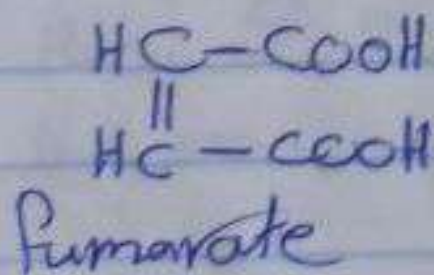 HC-COOH
||
HC-CCOH
fumarate